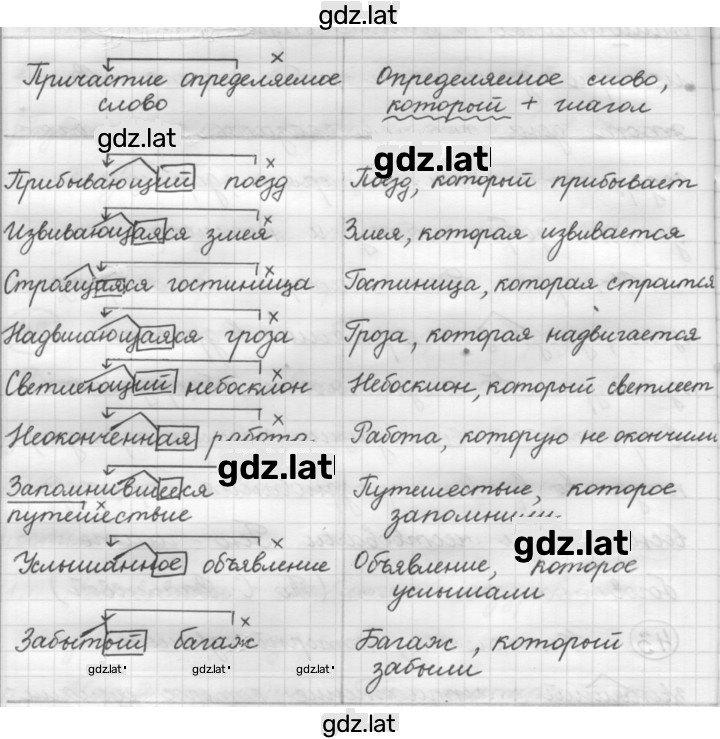 gdz.lat
Причастие определяемое
слово
Определяемое слово,
который + глагол
gdz.lat
gdz.lat
Прибывающий поезд
Поезд, который прибывает
Извивающаяся змея
Змея, которая извивается
Строящаяся гостиница
Гостиница, которая строится
Надвигающаяся гроза
Гроза, которая надвигается
Светлеющий небосклон
Небосклон, который светлеет
Неоконченная работа
Работа, которую не окончили
gdz.lat
Запомнившееся
путешествие
Путешествие, которое
gdz.lat
Услышанное объявление
Объявление, которое
услышали
Забытый багаж
Багаж, который
забыли
gdz.lat
gdz.lat
gdz.lat
gdz.lat